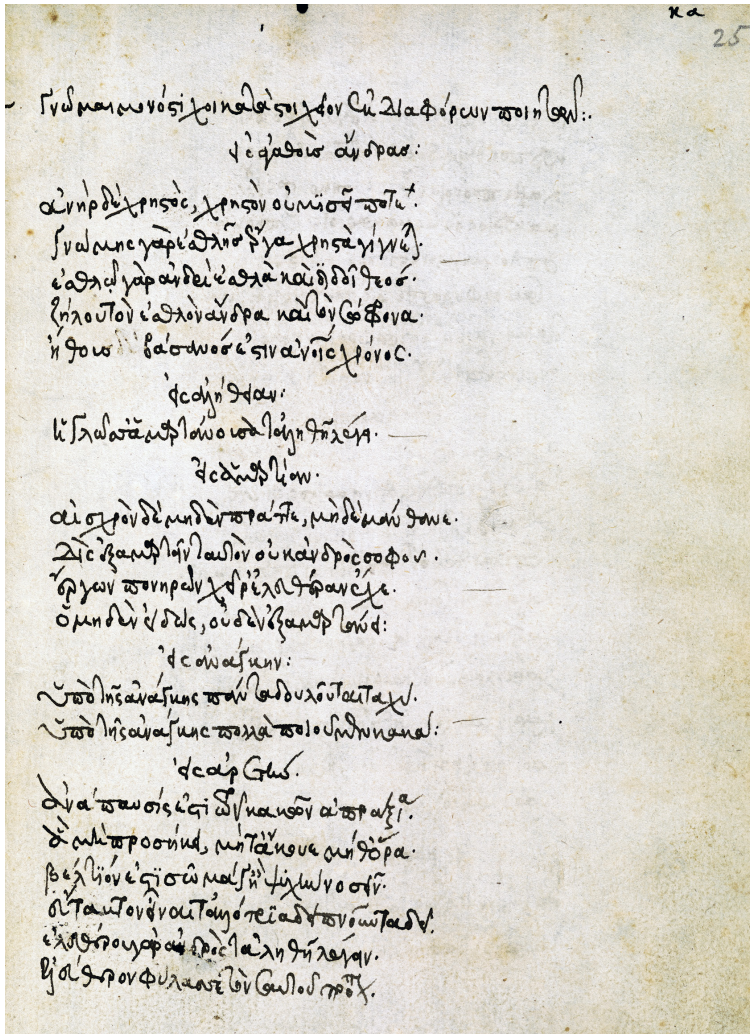 κα
25
Γνῶμαι μονόστιχοι κατὰ στοιχεῖον ἐκ διαφόρων ποιητῶν:.
εἰς ἀγαθοὺς ἄνδρας:
ἀνὴρ δὲ χρηστὸς, χρηστὸν οὐ μισεῖ ποτε.
γνώμης γὰρ ἐσθλῆς ἔργα χρηστὰ γίγνεται.
ἐσθλῷ γὰρ ἀνδρὶ ἐσθλὰ καὶ διδοῖ θεός.
ζήλου τὸν ἐσθλὸν ἄνδρα καὶ τὸν σώφρονα.
ἤθους βάσανός ἐστιν ἀνθρώποις χρόνος.
εἰς ἀλήθειαν:
ἀεὶ τἀληθῆ λέγειν.
εἰς ἁμαρτίαν.
αἰσχρὸν δὲ μηδὲν πρᾶττε, μηδὲ μάνθανε.
Δὶς ἐξαμαρτεῖν ταυτὸν οὐκ ἀνδρὸς σοφοῦ.
ἔργων πονηρῶν χεῖρ' ἐλευθέραν ἔχε.
ὁ μηδὲν εἰδὼς, οὐδὲν ἐξαμαρτάνει:
εἰς ἀνάγκην:
Ὑπὸ τῆς ἀνάγκης πάντα δουλοῦται ταχύ.
Ὑπὸ τῆς ἀνάγκης πολλὰ ποιοῦμεν κακά:
εἰς ἀρετήν.
Ἀνάπαυσίς ἐστι τῶν κακῶν ἀπραξία.
ἃ μὴ προσήκει, μήτ' ἄκουε μήθ' ὅρα.
βέλτιόν ἐστι σῶμά γ' ἢ ψυχὴν νοσεῖν.
ἐλευθέρου γὰρ ἀνδρὸς τἀληθῆ λέγειν.
ἐλεύθερον φύλαττε τὸν σαυτοῦ τρόπον.